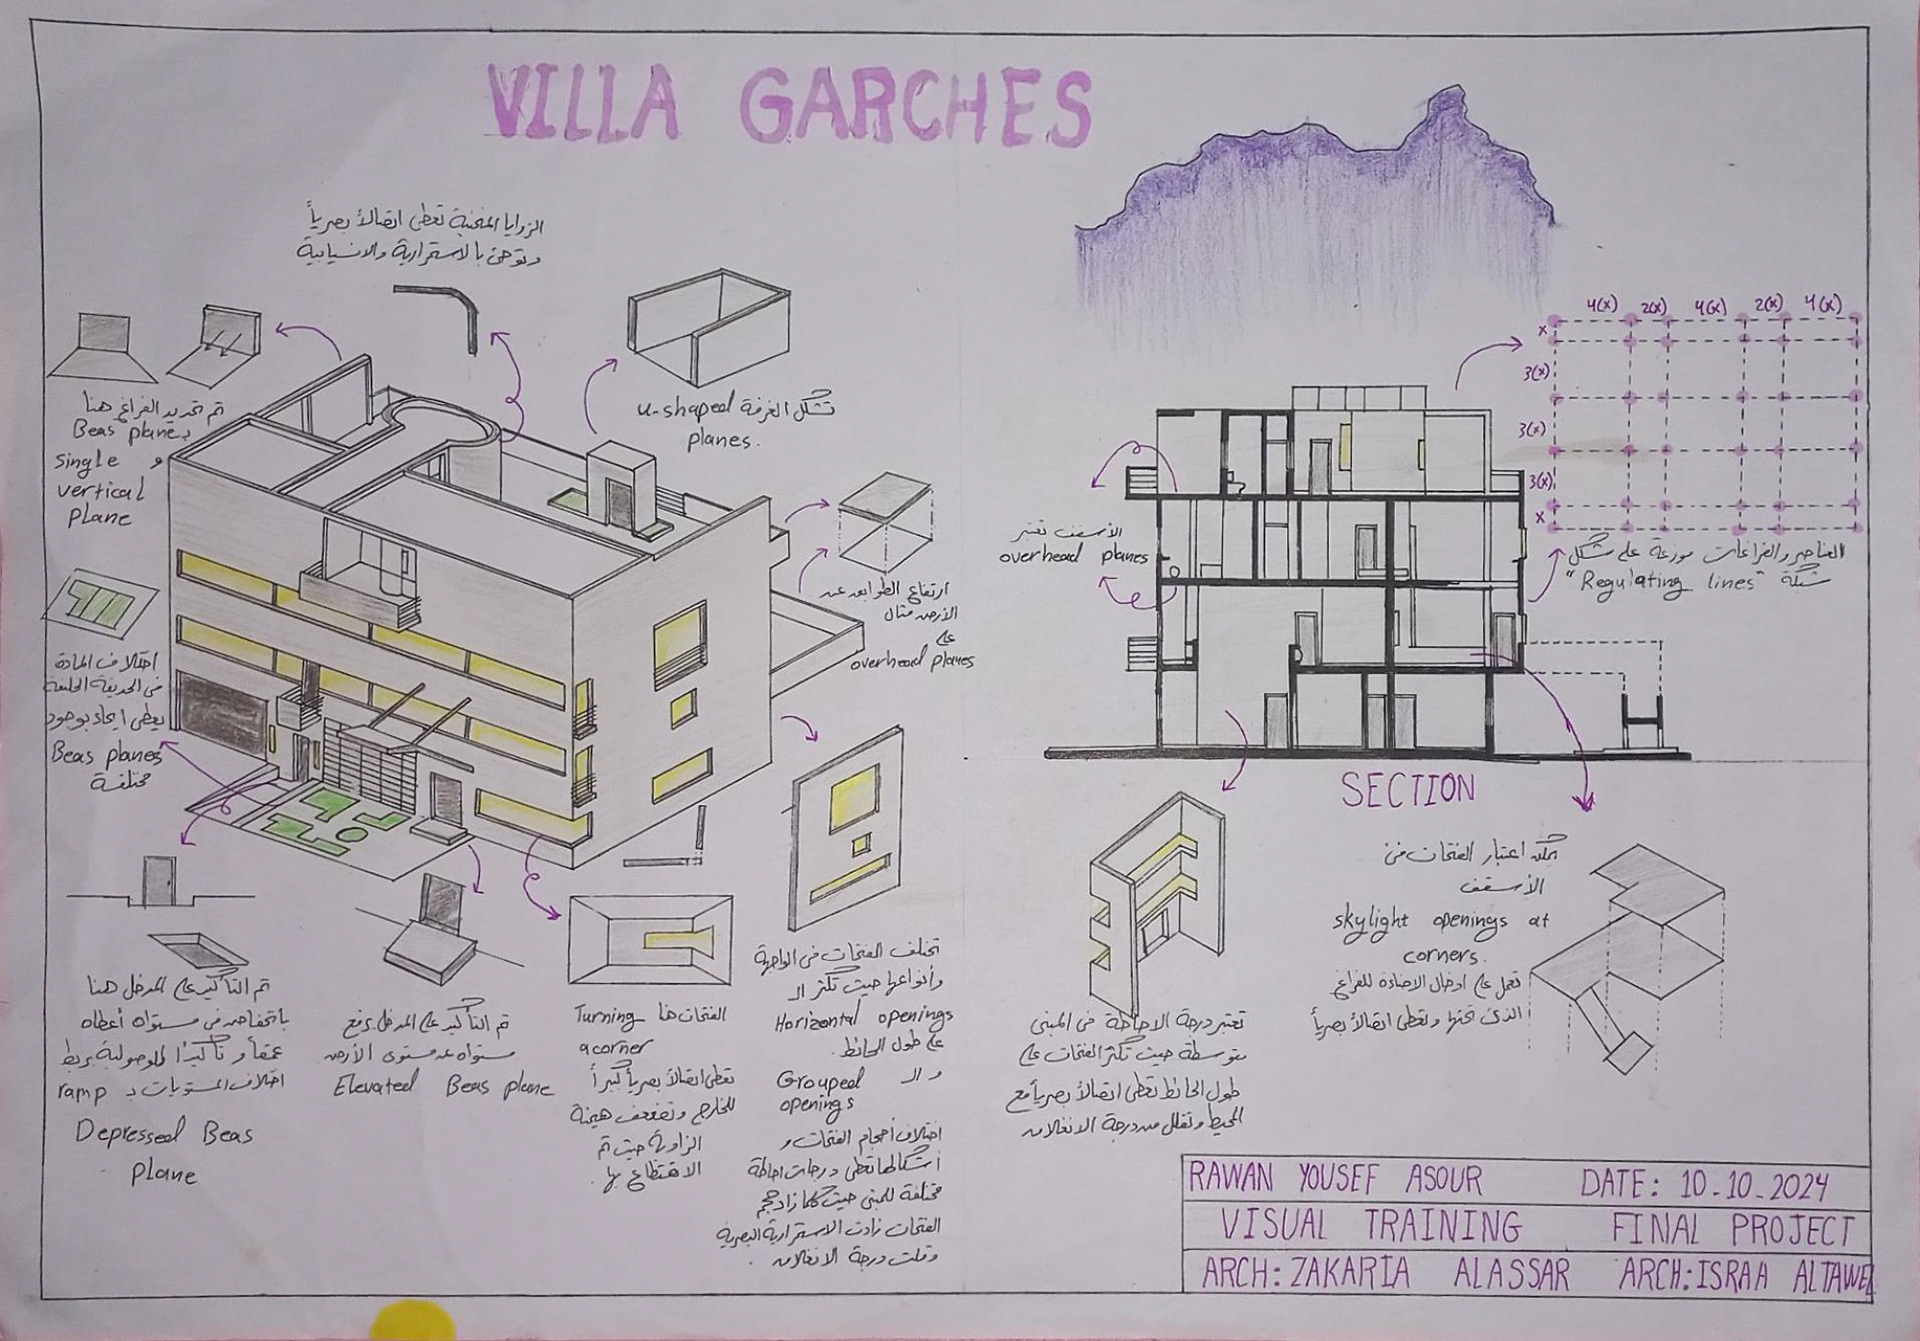 VILLA GARCHES
الزوايا المنحنية تعطي اتصالاً بصرياً
وتوحي بالاستمرارية والانسيابية
تم تحديد الفراغ هنا
بـ Beas plane
و single
vertical
plane
شكل الغرفة u-shaped
planes.
ارتفاع الطوابق عن
الأرض مثال
على
overhead planes
اختلاف المادة
في الحديقة الخلفية
يعطي ايحاء بوجود
Beas planes
مختلفة
تم التأكيد على المدخل هنا
بانخفاض في مستواه أعطاه
عمقاً و تأكيداً للوصولية بربط
اختلاف المستويات بـ ramp
Depressed Beas
plane
تم التأكيد على المدخل برفع
مستواه عن مستوى الأرض
Elevated Beas plane
الفتحات هنا Turning
a corner
تعطي اتصالاً بصرياً كبيراً
للخارج وتضعف هيمنة
الزاوية حيث تم
الاقتطاع بها.
تختلف الفتحات في الواجهة
وأنواعها حيث تكثر الـ
Horizontal openings
على طول الحائط.
و الـ Grouped
openings
اختلاف أحجام الفتحات و
أشكالها تعطي درجات احاطة
مختلفة للمبنى حيث كلما زاد حجم
الفتحات زادت الاستمرارية البصرية
وقلت درجة الانغلاق.
4(x) 2(x) 4(x) 2(x) 4(x)
x
3(x)
3(x)
3(x)
x
العناصر والفراغات موزعة على شكل
شبكة "Regulating lines"
الأسقف تعتبر
overhead planes
SECTION
تعتبر درجة الاحاطة في المبنى
متوسطة حيث تكثر الفتحات على
طول الحائط تعطي اتصالاً بصرياً مع
المحيط وتقلل من درجة الانغلاق
يمكن اعتبار الفتحات في
الأسقف
skylight openings at
corners.
تعمل على ادخال الاضاءة للفراغ
الذي تحتها وتعطي اتصالاً بصرياً
RAWAN YOUSEF ASOUR DATE: 10-10-2024
VISUAL TRAINING FINAL PROJECT
ARCH: ZAKARIA ALASSAR ARCH: ISRAA ALTAWEL